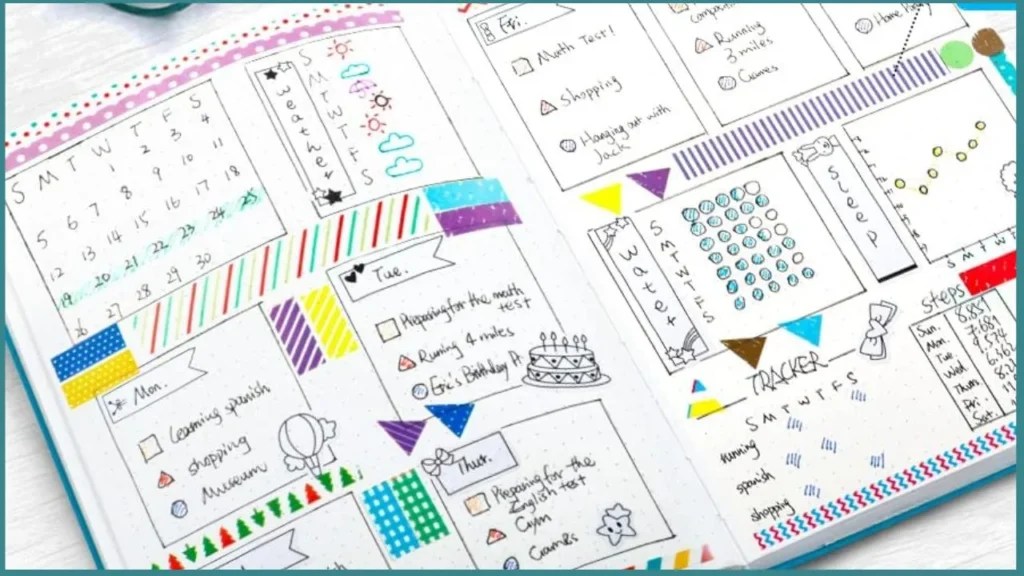 S M T W T F S
1 2 3 4
5 6 7 8 9 10 11
12 13 14 15 16 17 18
19 20 21 22 23 24 25
26 27 28 29 30
weather
S
M
T
W
T
F
S
Mon.
Learning spanish
shopping
Museum
Tue.
Preparing for the math
test
Runing 4 miles
Eric's Birthday P.
Thur.
Preparing for the
English test
Gym
Games
8 Fri.
Math Test!
Shopping
Hanging out with
Jack
Running
3 miles
Games
Home
water
S
M
T
W
T
F
S
Sleep
S M T W
steps
Sun.
Mon.
Tue
Wed
Thur.
Fri.
Sat.
TRACKER
S M T W T F S
running
spanish
shopping